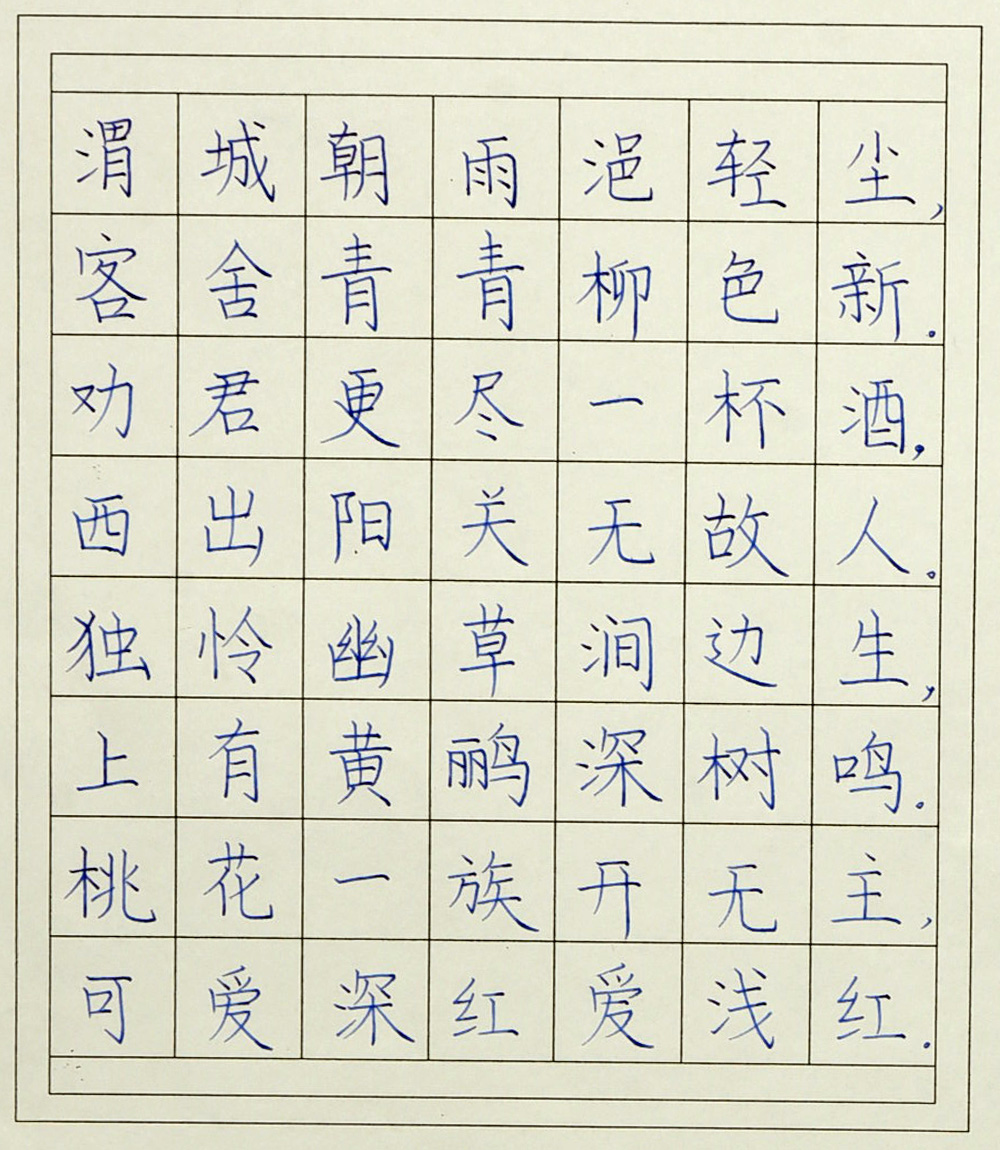 渭城朝雨浥轻尘,
客舍青青柳色新.
劝君更尽一杯酒,
西出阳关无故人。
独怜幽草涧边生,
上有黄鹂深树鸣.
桃花一族开无主,
可爱深红爱浅红.